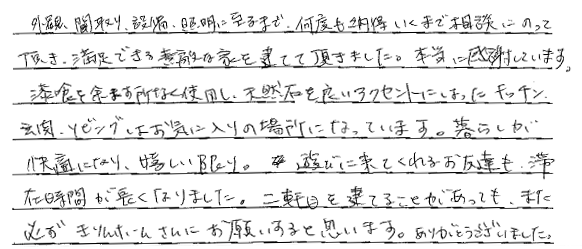 外観、間取り、設備、照明に至るまで、何度も納得いくまで相談にのって
頂き、満足できる素敵な家を建てて頂きました。本当に感謝しています。
漆喰を余す所なく使用し、天然石を良いアクセントにしたキッチン、
玄関、リビングはお気に入りの場所になっています。暮らしが
快適になり、嬉しい限り。遊びに来てくれるお友達も、滞
在時間が長くなりました。二軒目を建てることがあっても、また
必ずきりんホームさんにお願いすると思います。ありがとうございました。